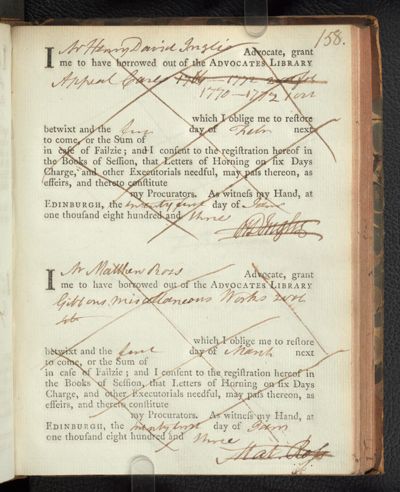 158.
I Mr Henry David Inglis Advocate, grant
me to have borrowed out of the ADVOCATES LIBRARY
Appeal Cases
1770–1772 1 vol
which I oblige me to restore
betwixt and the first day of next
to come, or the Sum of
in caſe of Failzie; and I conſent to the regiſtration hereof in
the Books of Seſſion, that Letters of Horning on ſix Days
Charge, and other Executorials needful, may paſs thereon, as
effeirs, and thereto conſtitute
my Procurators. As witneſs my Hand, at
EDINBURGH, the twenty first day of Janr
one thouſand eight hundred and three
HD Inglis
I Mr Matthew Ross Advocate, grant
me to have borrowed out of the ADVOCATES LIBRARY
Gibbons miscellaneous Works 2 vol
which I oblige me to reſtore
betwixt and the first day of March next
to come, or the Sum of
in caſe of Failzie; and I conſent to the regiſtration hereof in
the Books of Seſſion, that Letters of Horning on ſix Days
Charge, and other Executorials needful, may paſs thereon, as
effeirs, and thereto conſtitute
my Procurators. As witneſs my Hand, at
EDINBURGH, the twenty first day of Janr
one thouſand eight hundred and three
Mat. Ross